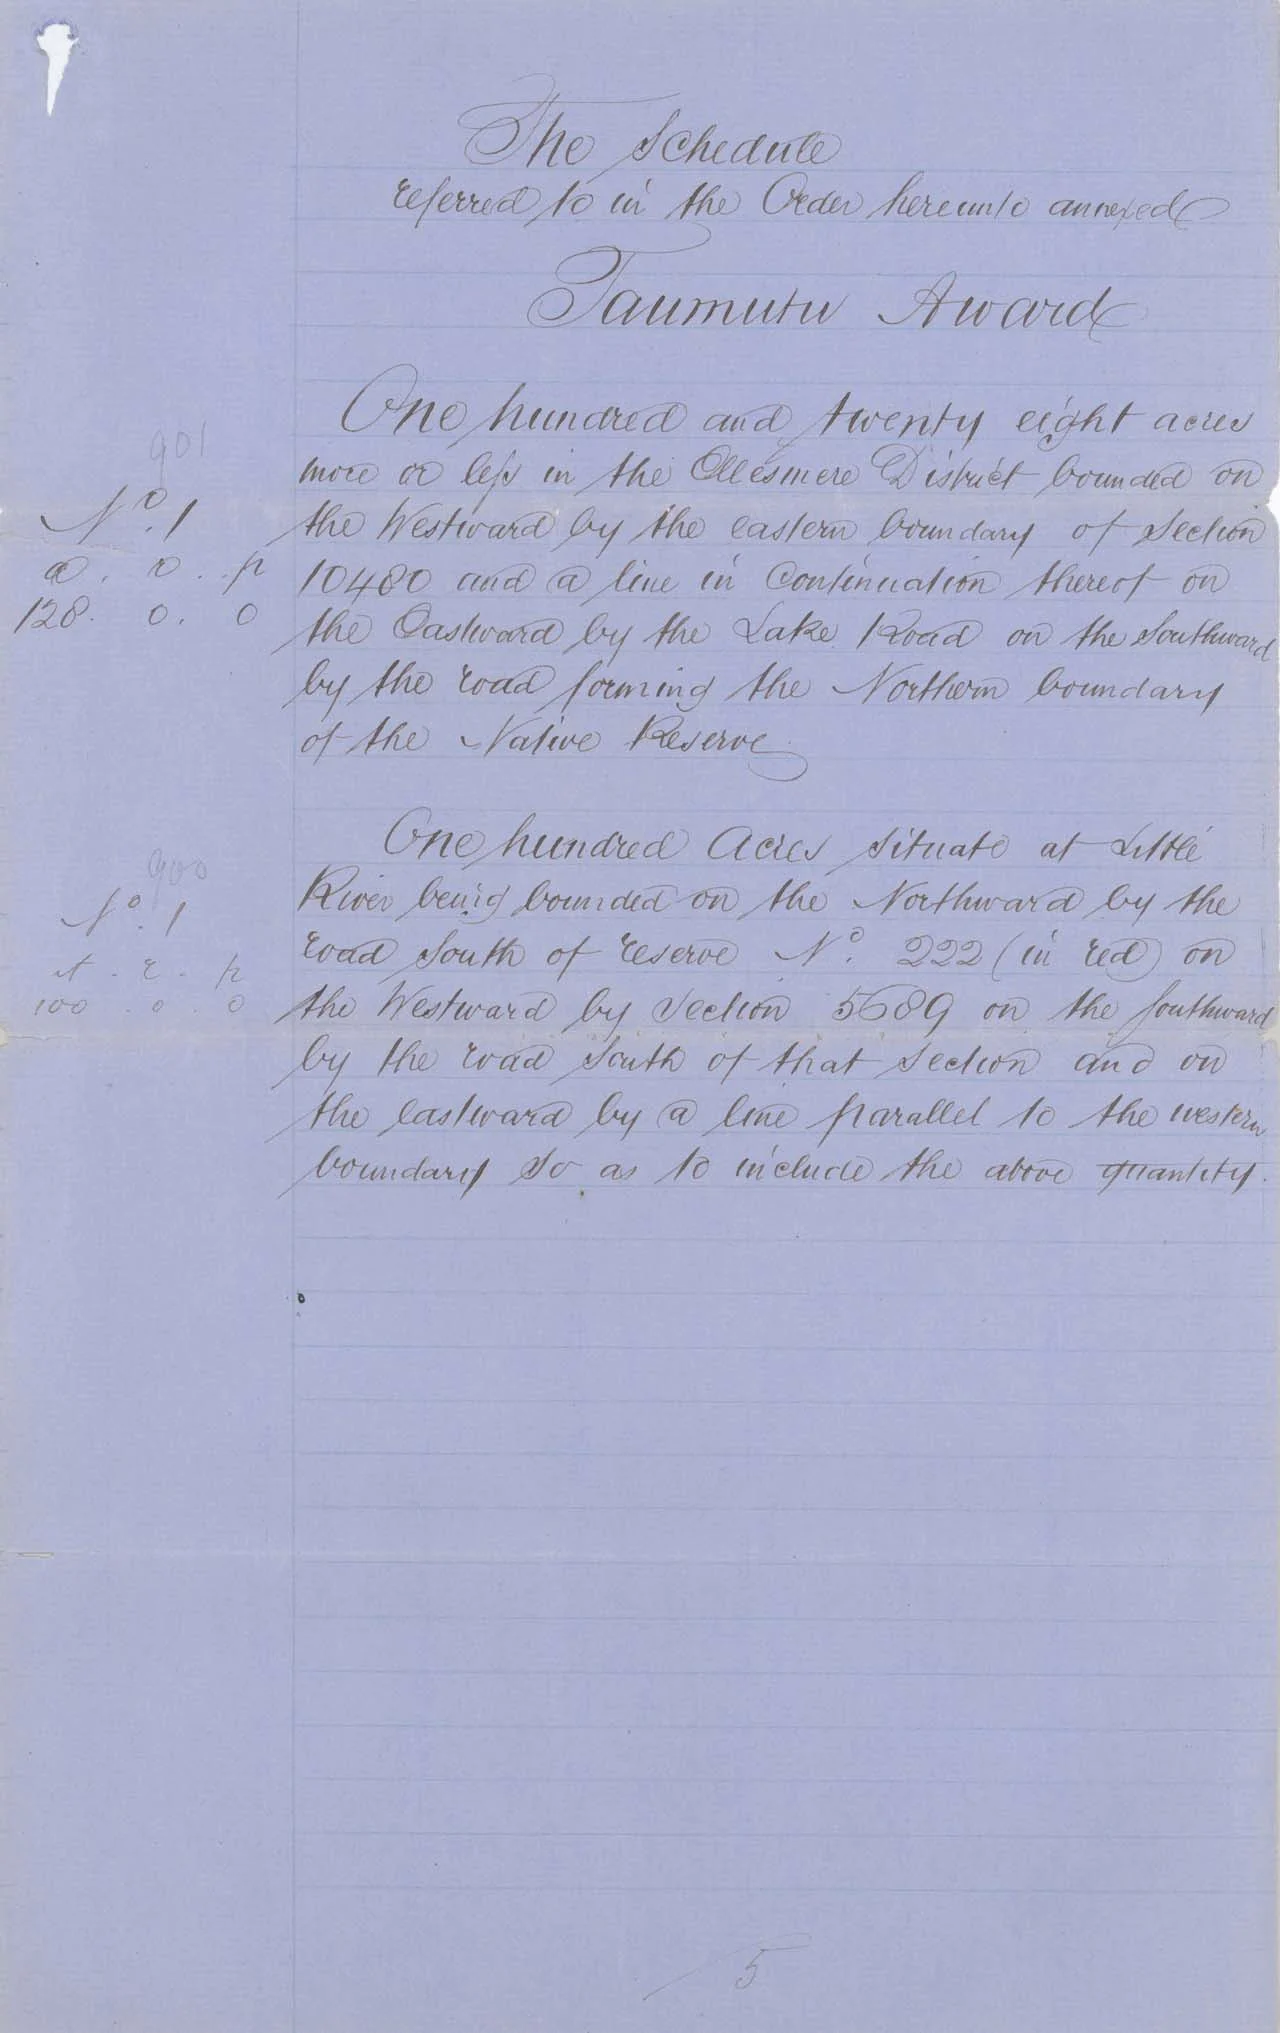 The Schedule
referred to in the Order hereunto annexed
Taumutu Award
One hundred and twenty eight acres
901
more or less in the Ellesmere District bounded on
No. 1
the Westward by the eastern boundary of Section
a. r. p
10480 and a line in continuation thereof on
128. 0. 0
the Eastward by the Lake Road on the Southward
by the road forming the Northern boundary
of the Native Reserve
One hundred Acres situate at Little
900
River being bounded on the Northward by the
No. 1
road South of reserve No. 222 (in red) on
a. r. p
the Westward by Section 5689 on the Southward
100. 0. 0
by the road South of that Section and on
the eastward by a line parallel to the western
boundary so as to include the above quantity.
5